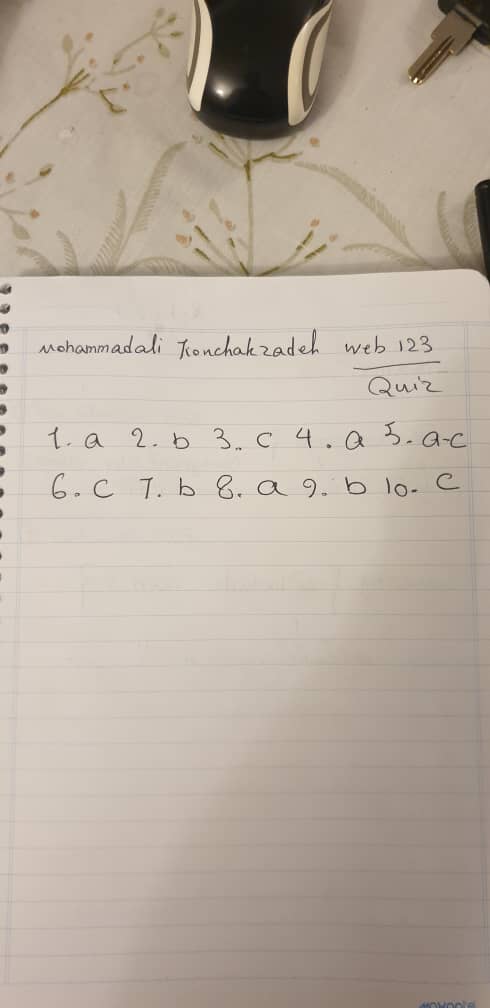 Mohammadali Konchakzadeh web 123
Quiz
1. a 2. b 3. c 4. a 5. a-c
6. c 7. b 8. a 9. b 10. c